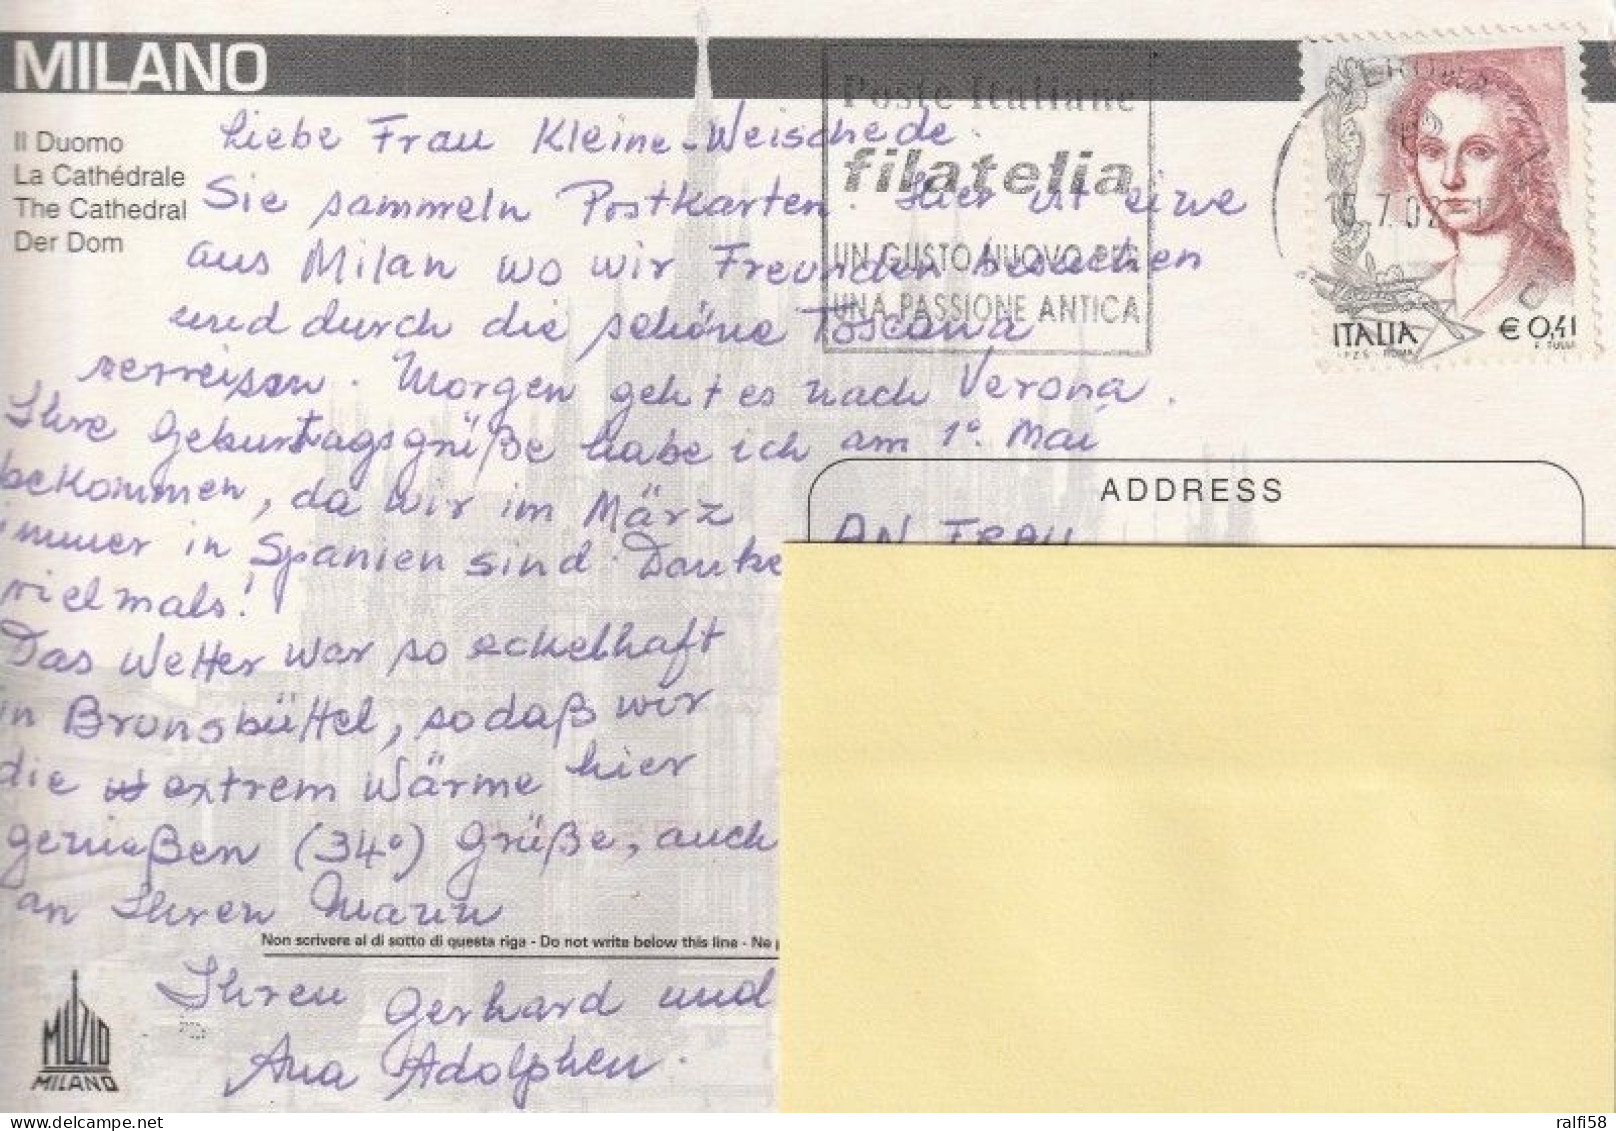 MILANO
Il Duomo
La Cathédrale
The Cathedral
Der Dom
Poste Italiane
filatelia
UN GUSTO NUOVO PER
UNA PASSIONE ANTICA
7.02
ITALIA
€ 0,41
I.P.Z.S. ROMA
F. TULLI
Liebe Frau Kleine-Weischede.
Sie sammeln Postkarten. Hier ist eine
aus Milan wo wir Freunden besuchen
und durch die schöne Toscana
verreisen. Morgen geht es nach Verona.
Ihre Geburtagsgrüße habe ich am 1º. Mai
bekommen, da wir im März
immer in Spanien sind. Danke
vielmals!
Das Wetter war so eckelhaft
in Brunsbüttel, sodaß wir
die extrem Wärme hier
genießen (34º) Grüße, auch
an Ihren Mann
Ihren Gerhard und
Ana Adolphen.
ADDRESS
AN FRAU
Non scrivere al di sotto di questa riga - Do not write below this line - Ne
MUZIO
MILANO
ralfi58